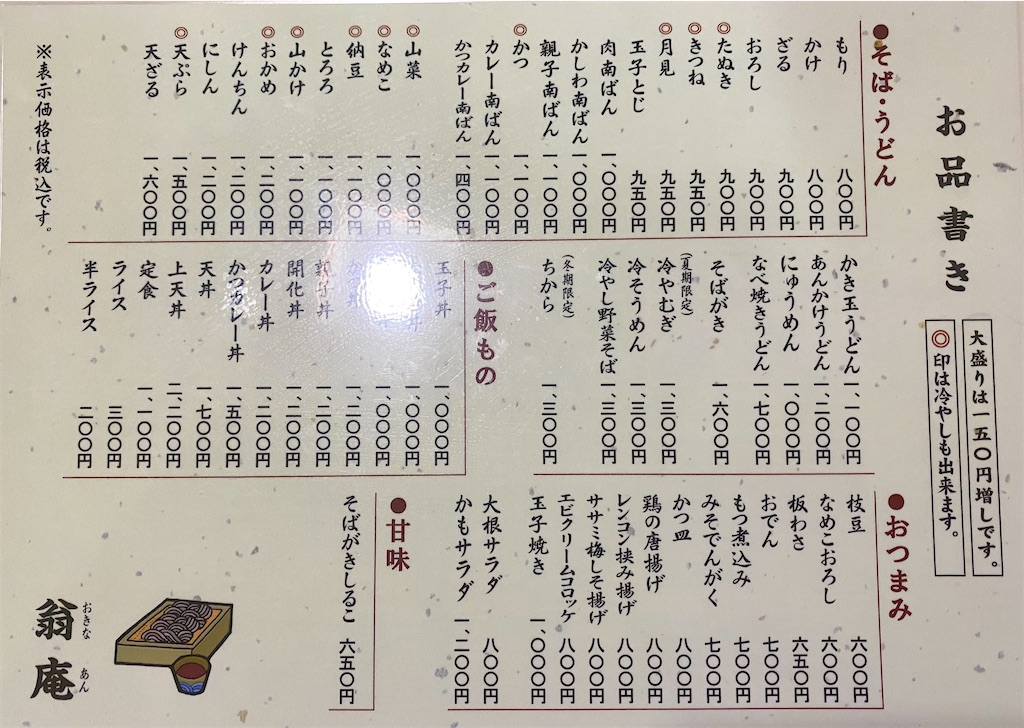 お品書き
大盛りは一五〇円増しです。
◎印は冷やしも出来ます。
●そば・うどん
もり 八〇〇円
かけ 八〇〇円
ざる 九〇〇円
おろし 九〇〇円
◎たぬき 九〇〇円
◎きつね 九五〇円
◎月見 九五〇円
玉子とじ 九五〇円
肉南ばん 一、〇〇〇円
かしわ南ばん 一、〇〇〇円
親子南ばん 一、一〇〇円
◎かつ 一、一〇〇円
カレー南ばん 一、一〇〇円
かつカレー南ばん 一、四〇〇円
◎山菜 一、〇〇〇円
◎なめこ 一、〇〇〇円
◎納豆 一、一〇〇円
とろろ 一、一〇〇円
◎山かけ 一、一〇〇円
◎おかめ 一、二〇〇円
けんちん 一、二〇〇円
にしん 一、二〇〇円
◎天ぷら 一、五〇〇円
天ざる 一、六〇〇円
※表示価格は税込です。
かき玉うどん 一、一〇〇円
あんかけうどん 一、二〇〇円
にゅうめん 一、〇〇〇円
なべ焼きうどん 一、七〇〇円
そばがき 一、六〇〇円
(夏期限定)
冷やむぎ 一、三〇〇円
冷そうめん 一、三〇〇円
冷やし野菜そば 一、三〇〇円
(冬期限定)
ちから 一、三〇〇円
●ご飯もの
玉子丼 一、〇〇〇円
一、〇〇〇円
一、〇〇〇円
一、二〇〇円
親子丼 一、二〇〇円
開化丼 一、二〇〇円
カレー丼 一、二〇〇円
かつカレー丼 一、五〇〇円
天丼 一、七〇〇円
上天丼 二、二〇〇円
定食 一、一〇〇円
ライス 三〇〇円
半ライス 二〇〇円
●おつまみ
枝豆 六〇〇円
なめこおろし 六〇〇円
板わさ 六五〇円
おでん 七〇〇円
もつ煮込み 七〇〇円
みそでんがく 七〇〇円
かつ皿 八〇〇円
鶏の唐揚げ 八〇〇円
レンコン挟み揚げ 八〇〇円
ササミ梅しそ揚げ 八〇〇円
エビクリームコロッケ 八〇〇円
玉子焼き 一、〇〇〇円
大根サラダ 八〇〇円
かもサラダ 一、二〇〇円
●甘味
そばがきしるこ 六五〇円
翁庵
おきな あん